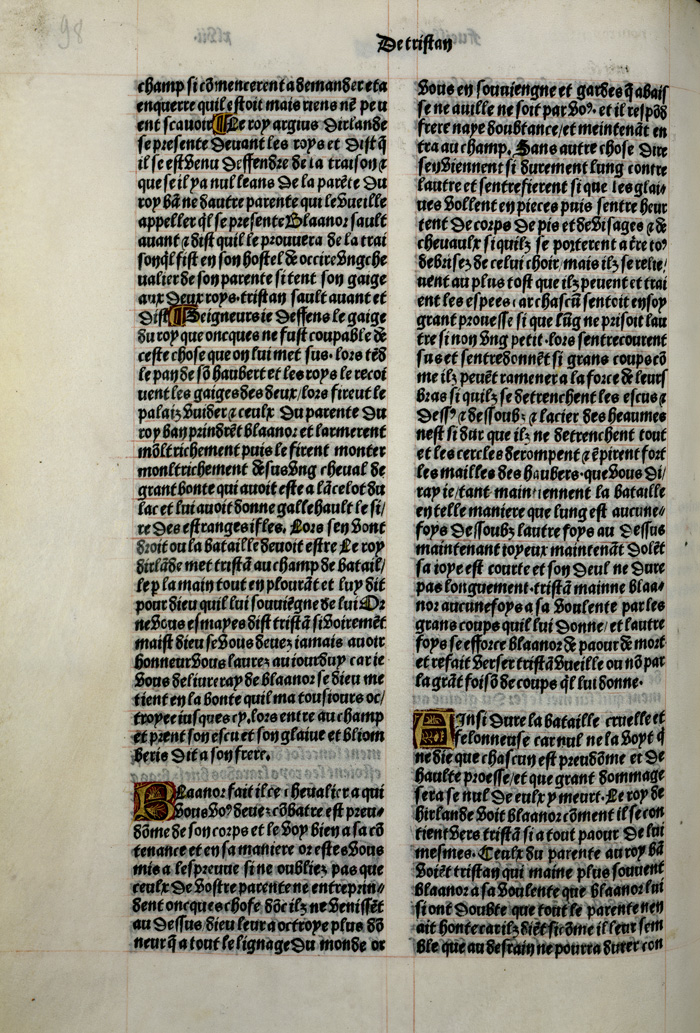 98
De tristan
champ si cõmencerent a demander et a
enquerre quil estoit mais riens nẽ peu
ent scauoir Le roy argius dirlande
se presente deuant les roys et dist q̃
il se est venu deffendre de la traison ⁊
que se il ya nul leans de la parẽte du
roy bã ne dautre parente qui le vueille
appeller q̃l se presente Blaanor sault
auant ⁊ dist quil le prouuera de la trai
son q̃l fist en son hostel de occire vng che
ualier de son parente si tent son gaige
aux deux roys. tristan sault auant et
dist Seigneurs ie deffens le gaige
du roy que oncques ne fust coupable de
ceste chose que on lui met sus. lors tẽd
le pan de sõ haubert et les roys le recoi
uent les gaiges des deux/lors firent le
palaiz vuider ⁊ ceulx du parente du
roy ban prindrẽt blaanor et larmerent
mõlt richement puis le firent monter
monlt richement de sus vng cheual de
grant bonte qui auoit este a lãcelot du
lac et lui auoit donne gallehault le si/
re des estranges isles. Lors sen vont
droit ou la bataille deuoit estre Le roy
dirlãde met tristã au champ de batail/
le p la main tout en plourãt et luy dit
pour dieu quil lui souuiẽgne de lui Or
ne vous esmayes dist tristã si voiremẽt
maist dieu se vous deuez iamais auoir
honneur vous laurez au iourduy car ie
vous deliureray de blaanor se dieu me
tient en la bonte quil ma tousiours oc/
troyee iusques cy. lors entre au champ
et prent son escu et son glaiue et bliom
beris dit a son frere.
BLaanor fait il ce cheualier a qui
vous voꝰ deuez cõbatre est preu/
dõme de son corps et le voy bien a sa cõ
tenance et en sa maniere or estes vous
mis a lespreuue si ne oubliez pas que
ceulx de vostre parente ne entreprin/
dent oncques chose dõc ilz ne venissẽt
au dessus/dieu leur a octroye plus dõ
neur q̃ a tout le lignage du monde or
vous en souuiengne et gardes q̃ abais
se ne auille ne soit par voꝰ. et il respõd
frere naye doubtance/et maintenãt en
tra au champ. Sans autre chose dire
sen viennent si durement lung contre
lautre et sentrefierent si que les glai/
ues vollent en pieces puis sentre heur
tent de corps de pis et de visages ⁊ de
cheuaulx si quilz se porterent a tre toꝰ
debrisez de celui choir/mais ilz se relie/
uent au plus tost que ilz peuent et trai
ent les espees car chascũ sentoit en soy
grant prouesse si que lũg ne prisoit lau
tre si non vng petit. lors sentrecourent
sus et sentredonnẽt si grans coups cõ
me ilz peuẽt ramener a la force de leurs
bras si quilz se detrenchent les escus ⁊
dessꝰ ⁊ dessoubz ⁊ lacier des heaumes
nest si dur que ilz ne detrenchent tout
et les cercles derompent ⁊ ẽpirent fort
les mailles des haubers. que vous di/
ray ie/tant maintiennent la bataille
en telle maniere que lung est aucune/
foys dessoubz lautre foys au dessus
maintenant ioyeux maintenãt dolẽt
sa ioye est courte et son deul ne dure
pas longuement. tristã mainne blaa/
nor aucunefoys a sa voulente par les
grans coups quil lui donne/et lautre
foys se efforce blaanor de paour de mort
et refait verser tristã vueille ou nõ par
la grãt foisõ de coups q̃l lui donne.
AInsi dure la bataille cruelle et
felonneuse car nul ne la voyt q̃
ne die que chascun est preudõme et de
haulte proesse/et que grant dommage
sera se nul de eulx y meurt. Le roy de
hirlande voit blaanor cõment il se con
tient vers tristã si a tout paour de lui
mesmes. Ceulx du parente au roy bã
voiẽt tristan qui maine plus souuent
blaanor a sa voulente que blaanor lui
si ont doubte que tout le parente nen
ait honte car ilz diẽt si cõme il leur sem
ble que au derrain ne pourra durer con